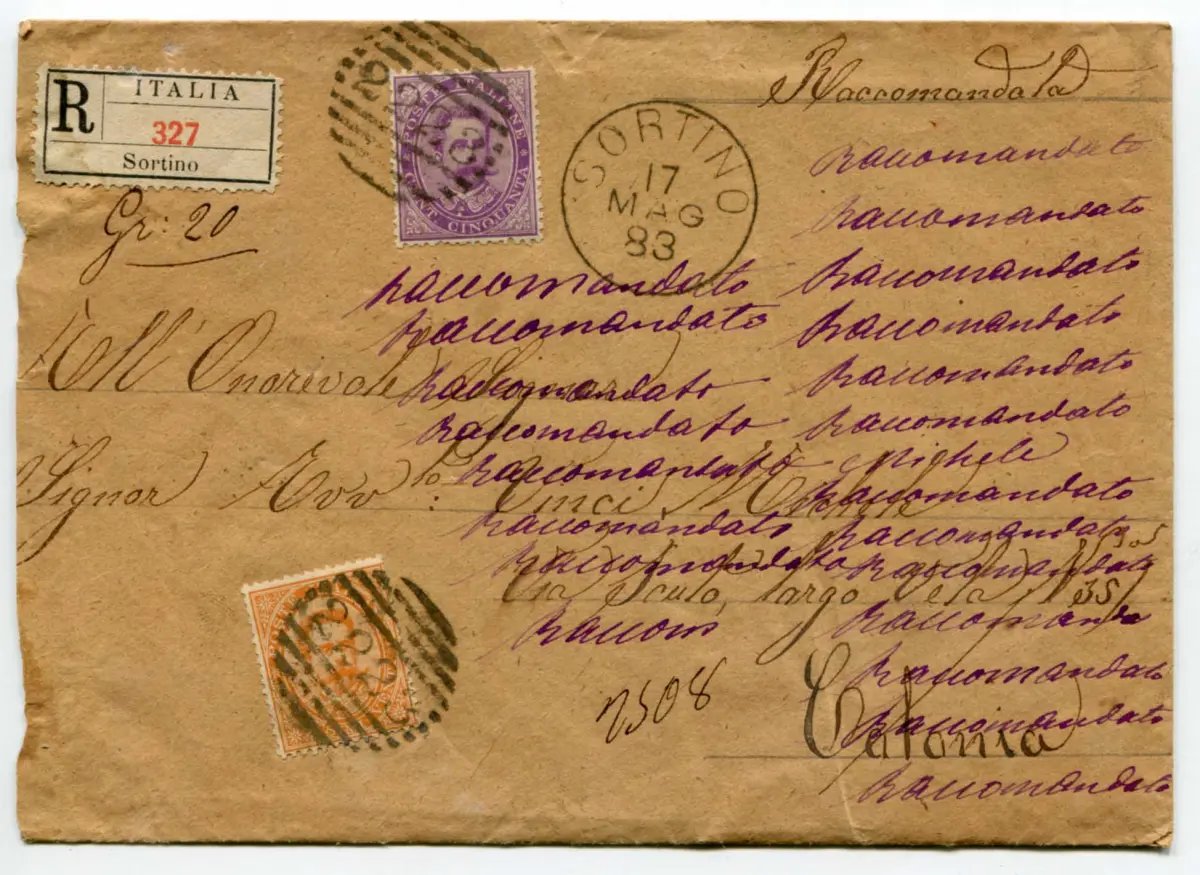 R ITALIA
327
Sortino
Gr: 20
POSTE ITALIANE
CENT CINQUANTA
SORTINO
17
MAG
83
Raccomandata
Raccomandato
Raccomandato
Raccomandato
Raccomandato
Raccomandato
Raccomandato
Raccomandato
Raccomandato
Raccomandato
Raccomandato
Raccomandato
Raccomandato
Raccomandato
Raccomandato
Raccomandato
Raccomandato
Raccomandato
Raccomanda
Raccom
Raccomandato
Raccomandato
Raccomandato
All' Onorevole Signor
Signor Avv.to Michele
Via largo 35
2508
Catania